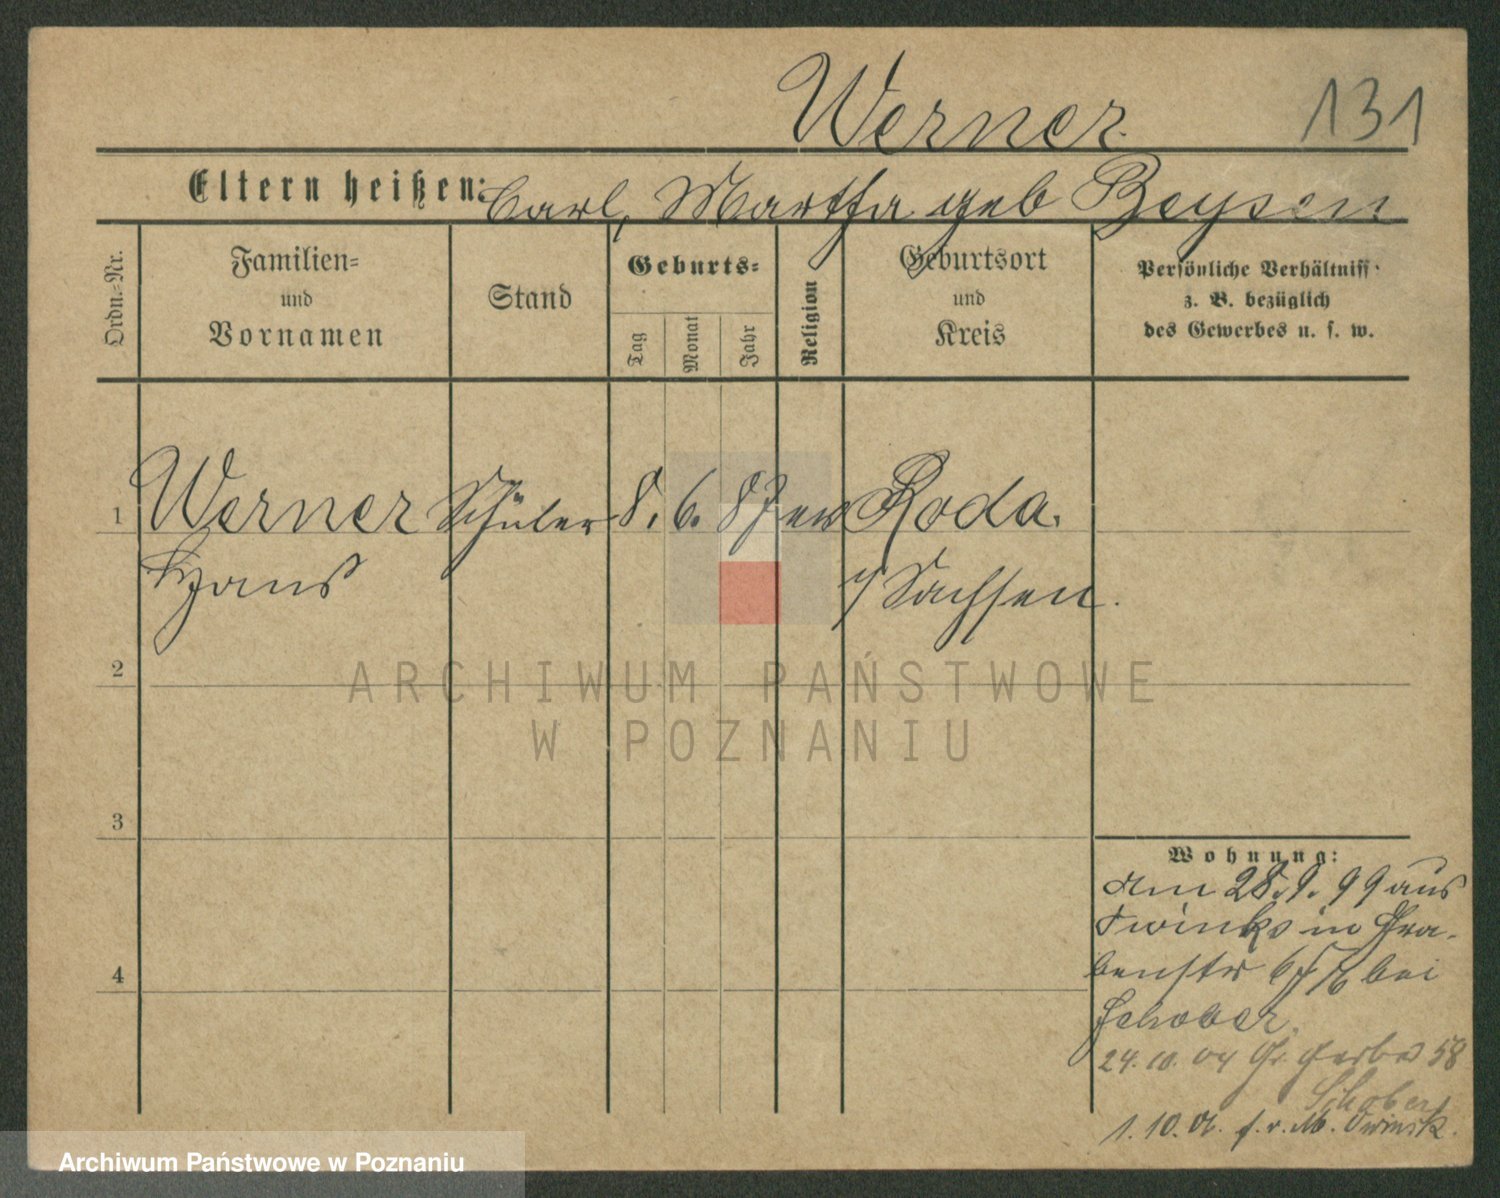 Werner. 131
Eltern heißen: Carl, Martha geb Beysen
Ordn.-Nr.
Familien-
und
Vornamen
Stand
Geburts-
Tag
Monat
Jahr
Religion
Geburtsort
und
Kreis
Persönliche Verhältniss
z. B. bezüglich
des Gewerbes u. s. w.
1 Werner Schüler 8. 6. 87 ew Roda.
Hans
i/ Sachsen.
2
ARCHIWUM PAŃSTWOWE
W POZNANIU
3
Wohnung:
Am 28. 9. 99 aus
Owinks in Gra-
benstr bei
4
Schober.
24. 10. 04 Gr. Gerber 58
Schober
1. 10. M. Owinsk.
Archiwum Państwowe w Poznaniu